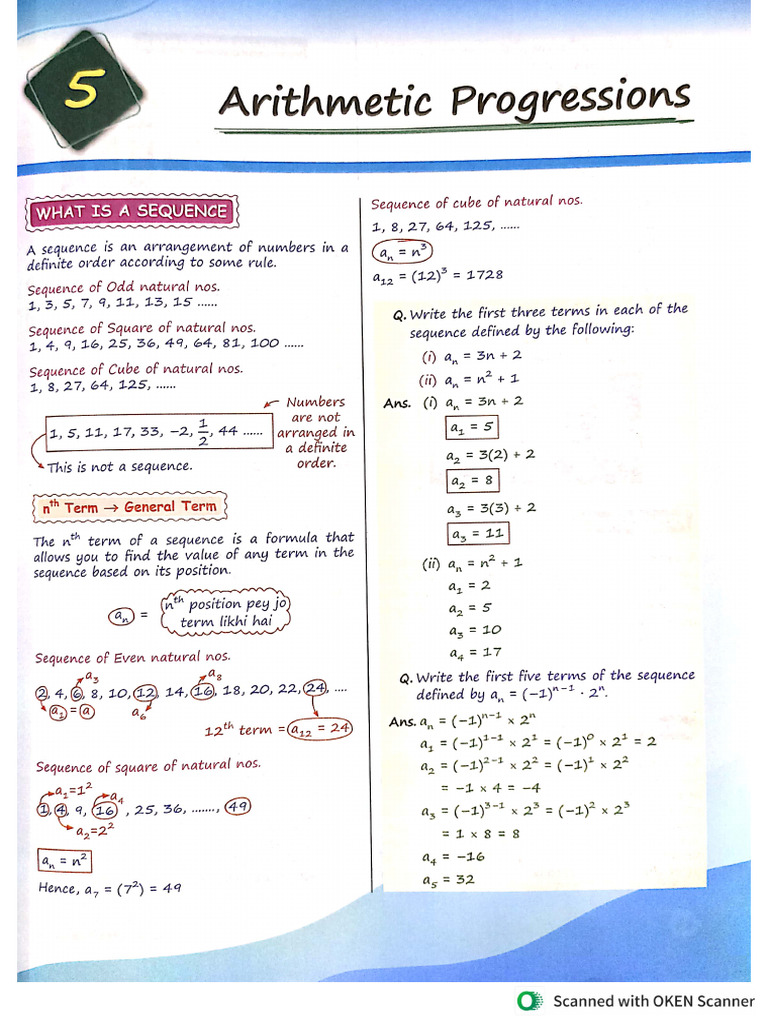 5
Arithmetic Progressions
WHAT IS A SEQUENCE
A sequence is an arrangement of numbers in a
definite order according to some rule.
Sequence of Odd natural nos.
1, 3, 5, 7, 9, 11, 13, 15 ......
Sequence of Square of natural nos.
1, 4, 9, 16, 25, 36, 49, 64, 81, 100 ......
Sequence of Cube of natural nos.
1, 8, 27, 64, 125, ......
1, 5, 11, 17, 33, −2, 1/2, 44 ......
Numbers
are not
arranged in
a definite
order.
This is not a sequence.
nᵗʰ Term → General Term
The nᵗʰ term of a sequence is a formula that
allows you to find the value of any term in the
sequence based on its position.
aₙ = nᵗʰ position pey jo
term likhi hai
Sequence of Even natural nos.
a₃ a₈
2, 4, 6, 8, 10, 12, 14, 16, 18, 20, 22, 24, ....
a₁ = a a₆
12ᵗʰ term = a₁₂ = 24
Sequence of square of natural nos.
a₁=1² a₄
1, 4, 9, 16, 25, 36, ......., 49
a₂=2²
aₙ = n²
Hence, a₇ = (7²) = 49
Sequence of cube of natural nos.
1, 8, 27, 64, 125, ......
aₙ = n³
a₁₂ = (12)³ = 1728
Q. Write the first three terms in each of the
sequence defined by the following:
(i) aₙ = 3n + 2
(ii) aₙ = n² + 1
Ans. (i) aₙ = 3n + 2
a₁ = 5
a₂ = 3(2) + 2
a₂ = 8
a₃ = 3(3) + 2
a₃ = 11
(ii) aₙ = n² + 1
a₁ = 2
a₂ = 5
a₃ = 10
a₄ = 17
Q. Write the first five terms of the sequence
defined by aₙ = (−1)ⁿ⁻¹ · 2ⁿ.
Ans. aₙ = (−1)ⁿ⁻¹ × 2ⁿ
a₁ = (−1)¹⁻¹ × 2¹ = (−1)⁰ × 2¹ = 2
a₂ = (−1)²⁻¹ × 2² = (−1)¹ × 2²
= −1 × 4 = −4
a₃ = (−1)³⁻¹ × 2³ = (−1)² × 2³
= 1 × 8 = 8
a₄ = −16
a₅ = 32
Scanned with OKEN Scanner